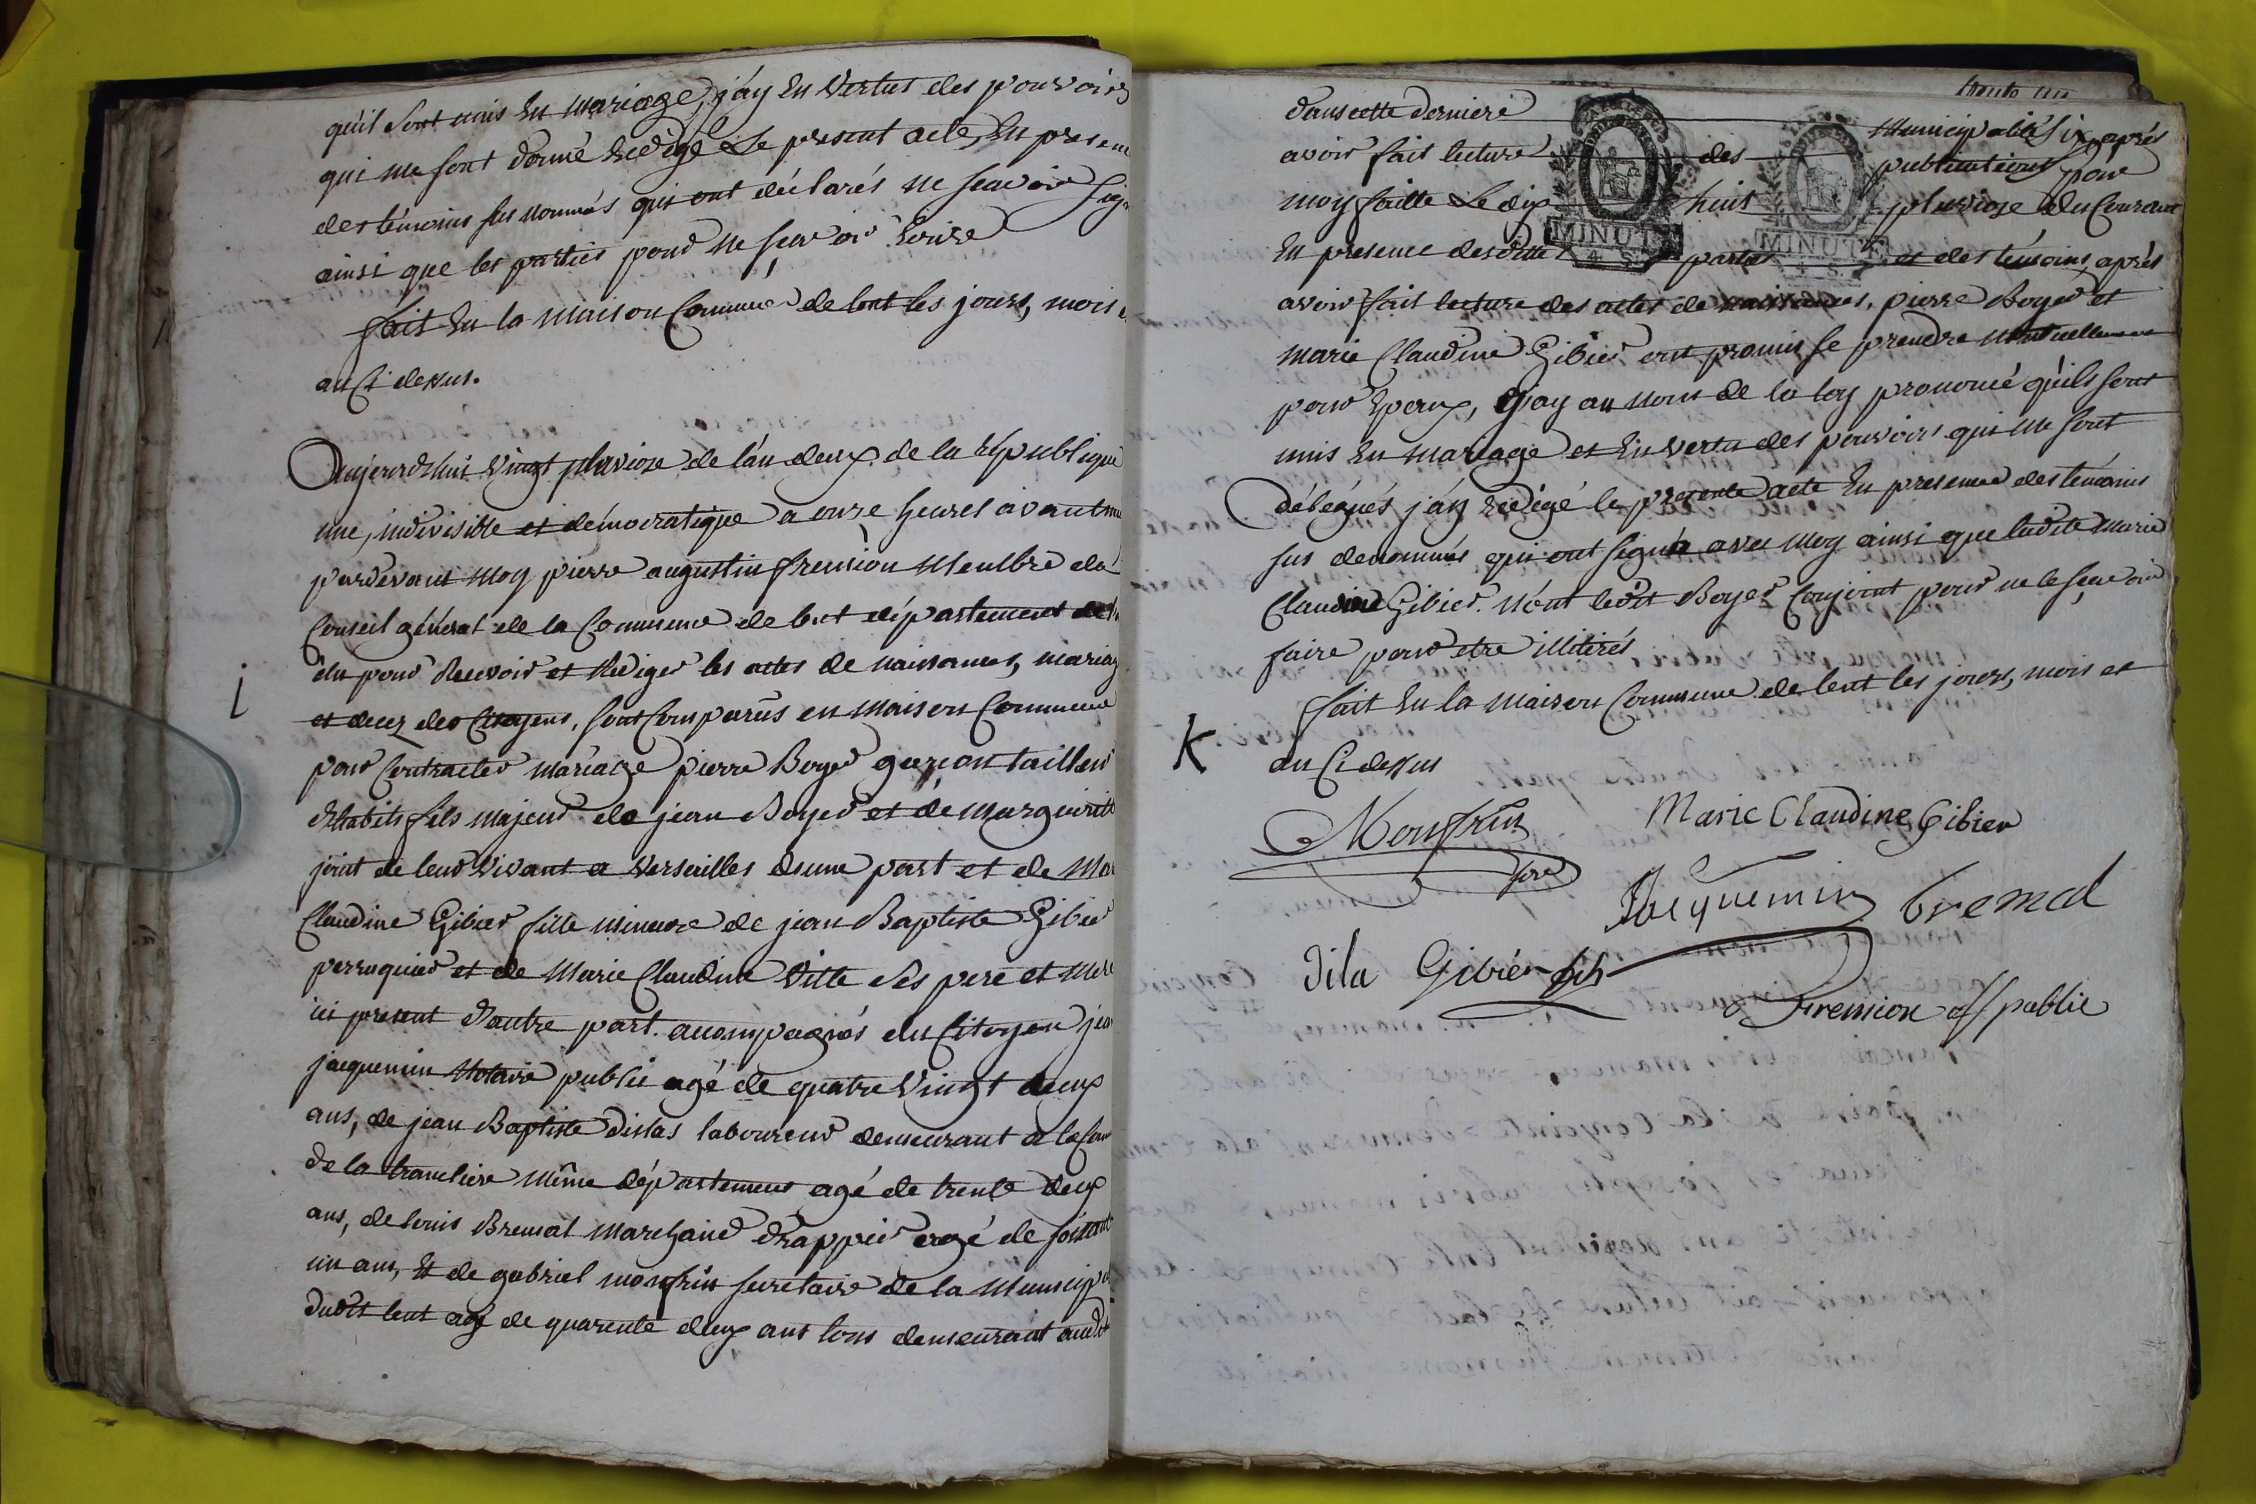 qu'il sont unis En mariage, j'ay En Vertus des pouvoirs
qui me sont donné Redigé Le present acte, En presen
des témoins sus nommés qui ont déclarés ne scavoir sign
ainsi que les parties pour ne scavoir Ecrire
fait En la maison Commune de lent les jours, mois
an Ci dessus.
Aujourdhui vingt pluviose de lán deux de la République
une, indivisible et démocratique a onze heures avant mi
pardevant moy pierre augustin fremion Membre du
Conseil général de la Commune de lent département de
élu pour Recevoir et Rédiger les actes de naissances, mariag
et decez des Citoyens, sont Comparus en Maison Commune
pour Contracter mariage pierre Boyer garçon tailleur
d'habits fils majeur de jean Boyer et de Marguerite
joint de leur Vivant a Versailles d'une part et de Mar
Claudine Gibier fille mineure de jean Baptiste Gibier
perruquier et de Marie Claudine Ville Ses pere et Mere
ici present d'autre part. accompagnés du Citoyen jea
jacquemin Notaire public agé de quatre Vingt deux
ans, de jean Baptiste dilas laboureur demeurant a la Com
de la tranclière même département agé de trente deux
ans, de louis Bremal Marchand drappier agé de soixant
un ans, Et de gabriel monfrin secretaire de la Municip
dudit lent agé de quarente deux ans tous demeurant audit
i
dans cette derniere Municipalité six, après
avoir fait lecture des publications par
moy faitte Le dix huit pluviose du Courant
En presence desdittes parties et des témoins, après
MINUTE MINUTE
4 S. 4 S.
avoir fait lecture des actes de naissances, pierre Boyer et
marie Claudine Gibier ont promis se prendre mutuellement
pour Epoux, j'ay au nom de la loy prononcé qu'ils sont
unis En mariage et En vertu des pouvoirs qui me sont
délégués j'áy redigé le presente acte En presence des témoins
sus denommés qui ont signé avec moy ainsi que ladite Marie
Claudine Gibier. Nónt ledit Boyer Conjoint pour ne le scavoir
faire pour etre illitirés
fait En la Maison Commune de lent les jours, mois et
K
an Ci dessus
Monfrin
Marie Claudine Gibier
Jacquemin
bremal
dila
Gibier fils
Fremion off public